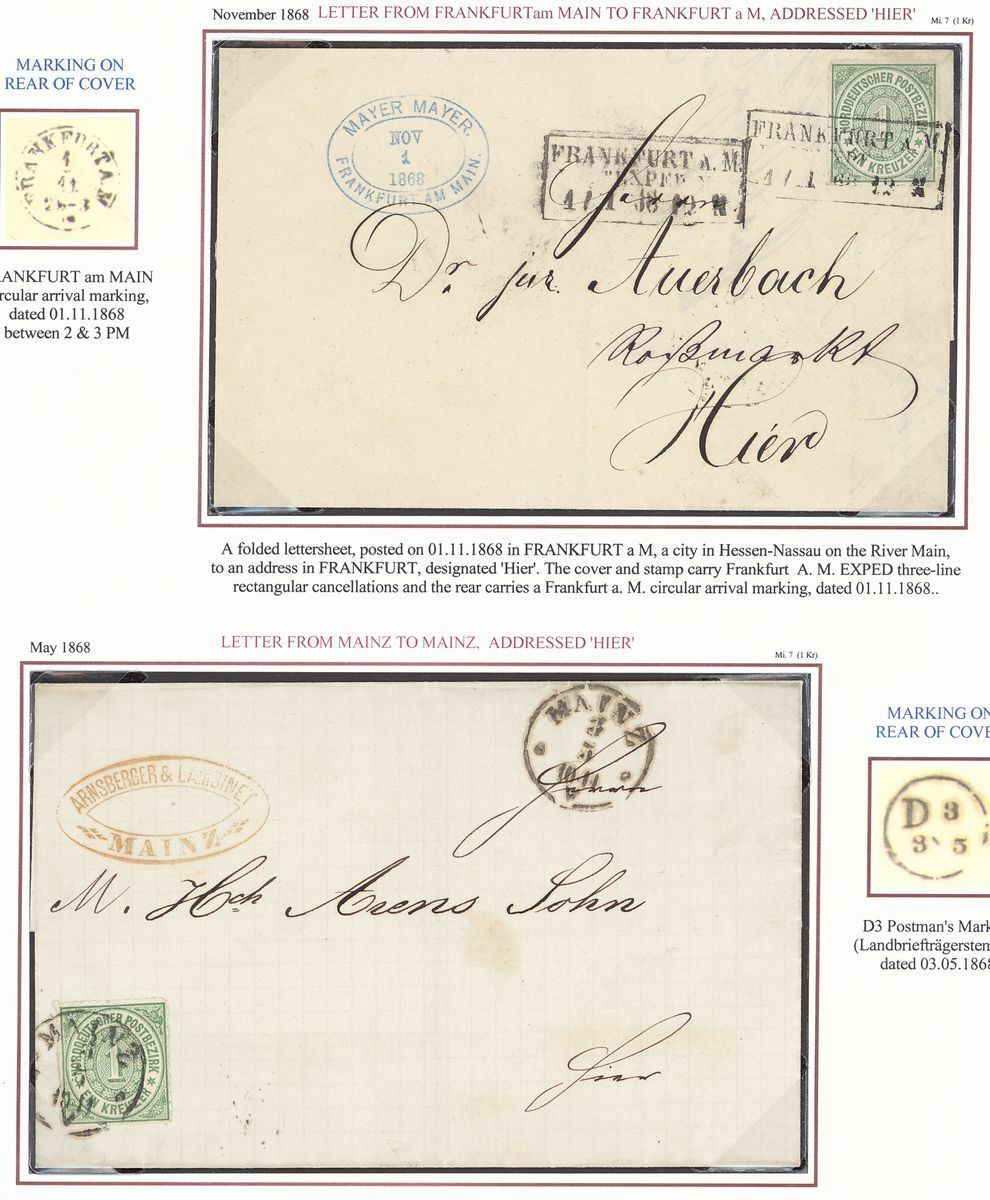 November 1868 LETTER FROM FRANKFURTam MAIN TO FRANKFURT a M, ADDRESSED 'HIER' Mi. 7 (1 Kr)
MARKING ON
REAR OF COVER
FRANKFURT A.M
1
11
2N-3
ANKFURT am MAIN
rcular arrival marking,
dated 01.11.1868
between 2 & 3 PM
MAYER MAYER.
NOV
1
1868
FRANKFURT AM MAIN.
FRANKFURT a. M.
EXPED
1 / 1 68 12 N
FRANKFURT a. M.
1 / 1 12 N
NORDDEUTSCHER POSTBEZIRK
1
EIN KREUZER
Herrn
Dr. jur. Auerbach
Roßmarkt
Hier
A folded lettersheet, posted on 01.11.1868 in FRANKFURT a M, a city in Hessen-Nassau on the River Main,
to an address in FRANKFURT, designated 'Hier'. The cover and stamp carry Frankfurt A. M. EXPED three-line
rectangular cancellations and the rear carries a Frankfurt a. M. circular arrival marking, dated 01.11.1868..
May 1868 LETTER FROM MAINZ TO MAINZ, ADDRESSED 'HIER' Mi. 7 (1 Kr)
MARKING ON
REAR OF COVE
D 3
3 5
D3 Postman's Mark
(Landbriefträgerstem
dated 03.05.1868
ARNSBERGER &
MAINZ
MAINZ
3
5
10-11
Herrn
M. Hch Arens Sohn
Hier
NORDDEUTSCHER POSTBEZIRK
1
EIN KREUZER